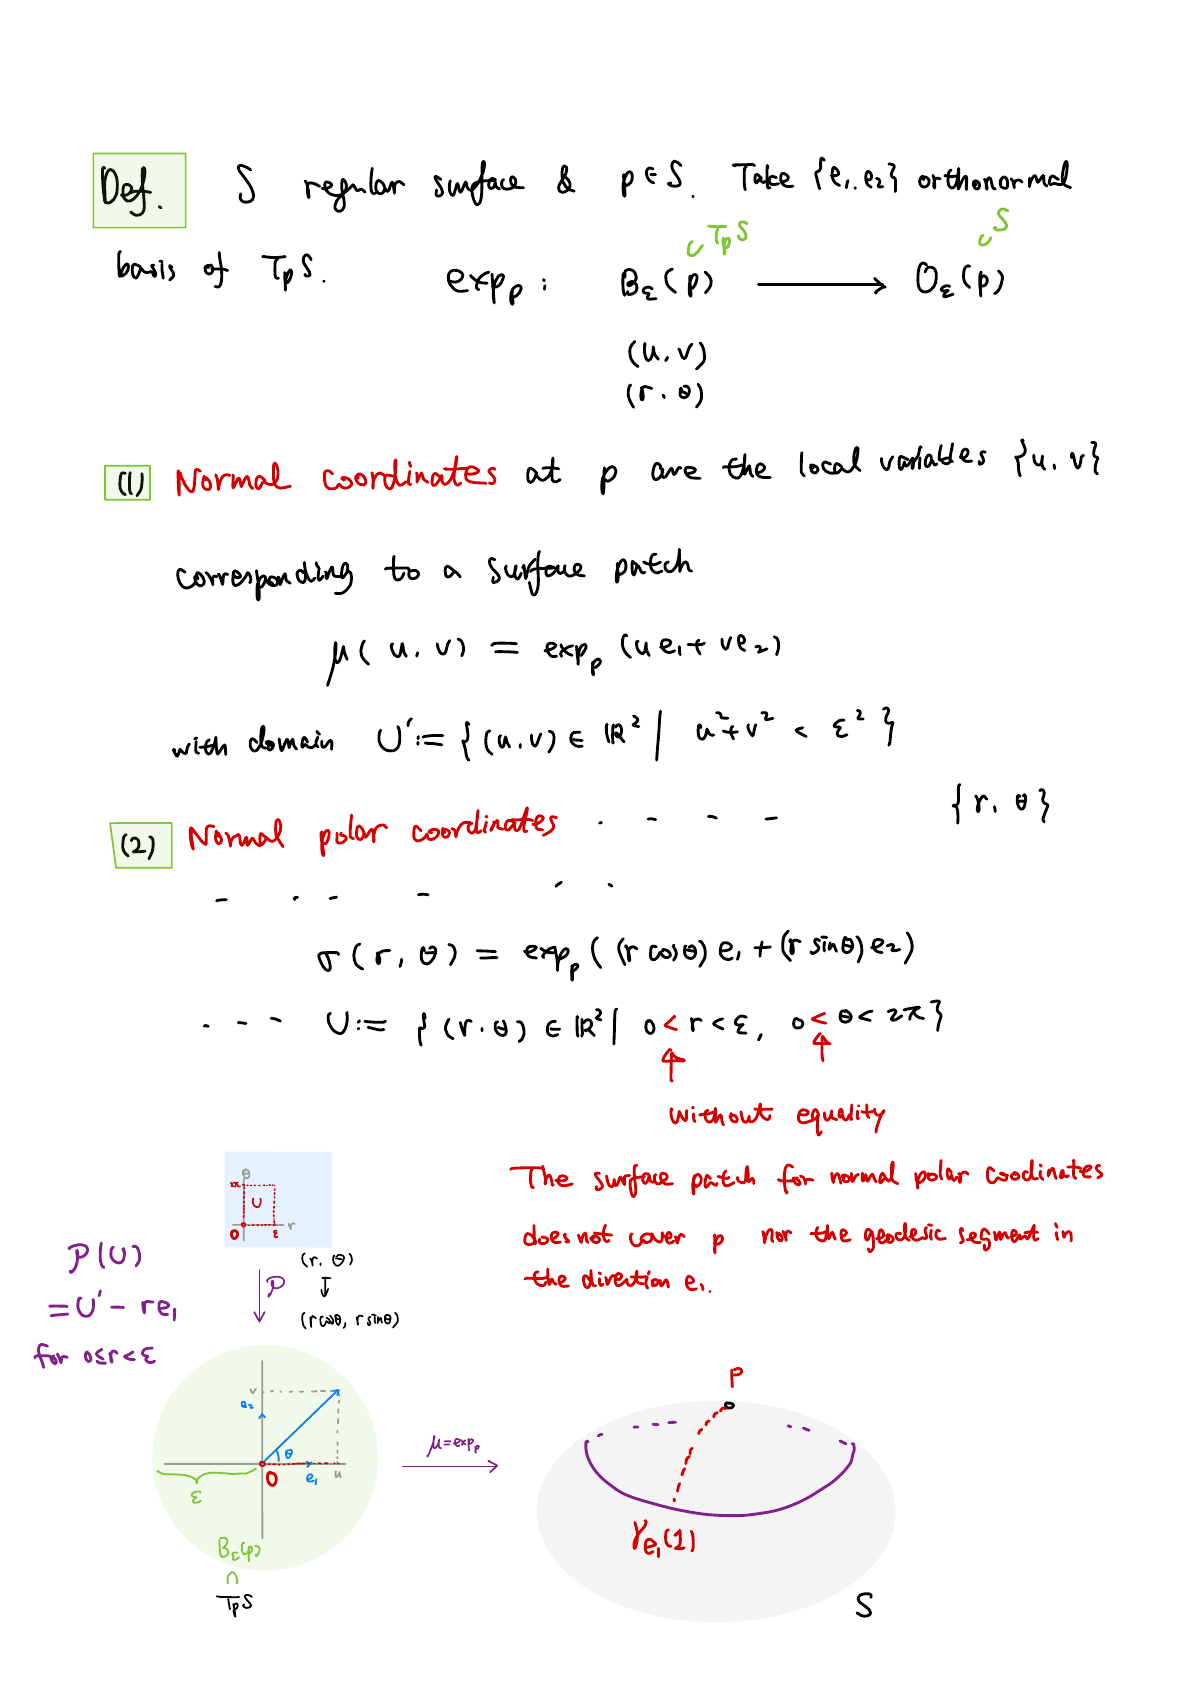 Def. S regular surface & p ∈ S. Take {e₁, e₂} orthonormal
basis of TpS. exp_p : B_ε(p) ⟶ O_ε(p)
∪ TpS
∪ S
(u, v)
(r, θ)
(1) Normal coordinates at p are the local variables {u, v}
corresponding to a surface patch
μ(u, v) = exp_p (ue₁ + ve₂)
with domain U' := {(u, v) ∈ ℝ² | u² + v² < ε²}
(2) Normal polar coordinates . - - - {r, θ}
- . - - . .
σ(r, θ) = exp_p ((r cosθ) e₁ + (r sinθ) e₂)
. - - - U := {(r, θ) ∈ ℝ² | 0 < r < ε, 0 < θ < 2π}
↑ ↑
without equality
The surface patch for normal polar coodinates
does not cover p nor the geodesic segment in
the direction e₁.
θ
2π
U
0 ε r
P(U)
= U' - re₁
for 0≤r<ε
P
(r, θ)
↧
(rcosθ, rsinθ)
v
e₂
θ
0 e₁ u
ε
B_ε(p)
∩
TpS
μ=exp_p
p
γ_e₁(1)
S